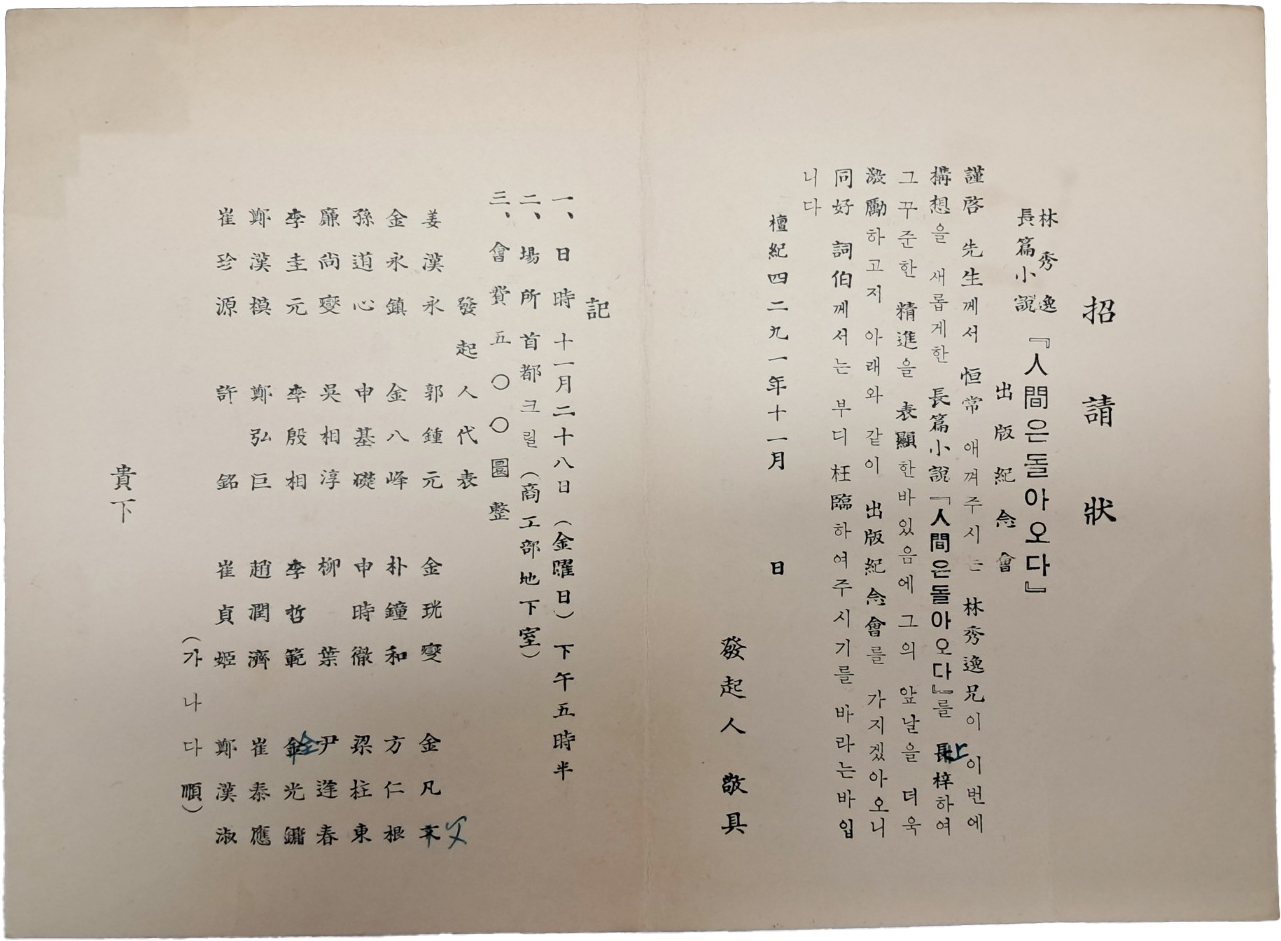 招請狀
林秀逸
長篇小說
『人間은돌아오다』
出版紀念會
謹啓 先生께서 恒常 애껴주시는 林秀逸兄이 이번에
構想을 새롭게한 長篇小說『人間은돌아오다』를 上梓하여
그꾸준한 精進을 表顯한바있음에 그의 앞날을 뎌욱
激勵하고지 아래와 같이 出版紀念會를 가지겠아오니
同好 詞伯께서는 부디 枉臨하여주시기를 바라는바입
니다
檀紀四二九一年十一月 日
發起人 敬具
記
一、日時 十一月二十八日(金曜日)下午五時半
二、場所 首都크릴(商工部地下室)
三、會費 五〇〇圜整
發起人代表
姜漢永 郭鍾元 金珖燮 金凡父
金永鎭 金八峰 朴鐘和 方仁根
孫道心 申基礎 申時徹 梁柱東
廉尚燮 吳相淳 柳葉 尹逢春
李圭元 李殷相 李哲範 全光鏞
鄭漢模 鄭弘巨 趙潤濟 崔泰應
崔珍源 許銘 崔貞姬 鄭漢淑
(가나다順)
貴下